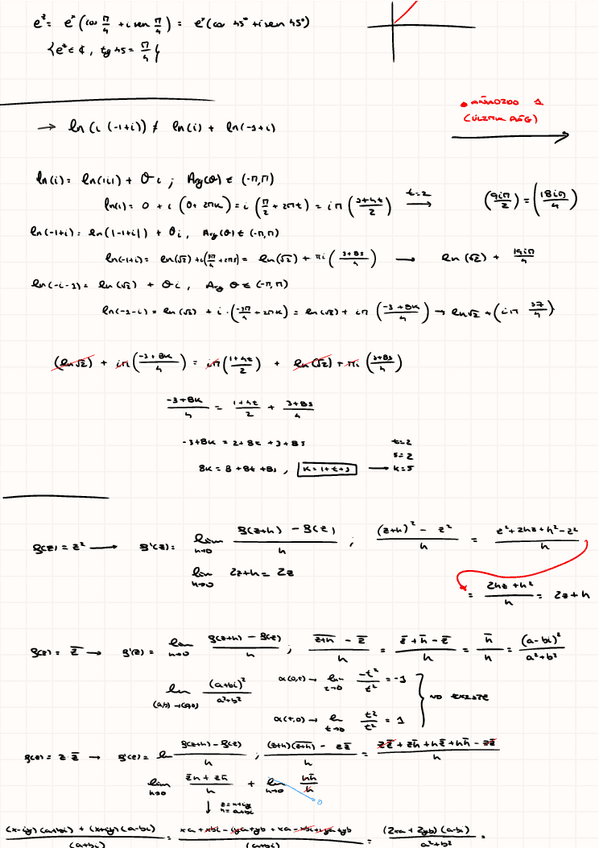 e^z = e^x (cos π/4 + i sen π/4) = e^x (cos 45° + i sen 45°)
{ e^x ∈ ℂ, tg 45 = π/4 }
• AÑADIDO 1
(ÚLTIMA PÁG)
→ ln(i(-1+i)) ≠ ln(i) + ln(-1+i)
ln(i) = ln(|i|) + θi ; Arg(θ) ∈ (-π,π)
ln(i) = 0 + i (0 + 2πk) = i (π/2 + 2πt) = iπ (1+4t / 2) t=2 → (9iπ/2) = (18iπ/4)
ln(-1+i) = ln(|-1+i|) + θi, Arg(θ) ∈ (-π,π)
ln(-1+i) = ln(√2) + i(3π/4 + 2πs) = ln(√2) + πi (3+8s / 4) → ln(√2) + 19iπ/4
ln(-i-1) = ln(√2) + θi, Arg θ ∈ (-π,π)
ln(-1-i) = ln(√2) + i · (-3π/4 + 2πk) = ln(√2) + iπ (-3+8k / 4) → ln√2 + (iπ 37/4)
(ln√2) + iπ (-3+8k / 4) = iπ (1+4t / 2) + ln(√2) + πi (3+8s / 4)
-3+8k / 4 = 1+4t / 2 + 3+8s / 4
-3+8k = 2+8t + 3+8s t=2
s=2
8k = 8+8t+8s, k=1+t+s → k=5
f(z) = z² → f'(z) = lim h→0 f(z+h) - f(z) / h ; (z+h)² - z² / h = z²+2hz+h²-z² / h
lim h→0 2z+h = 2z
= 2hz+h² / h = 2z+h
f(z) = z̄ → f'(z) = lim h→0 f(z+h) - f(z) / h ; z̄+h̄ - z̄ / h = z̄ + h̄ - z̄ / h = h̄ / h = (a-bi)² / a²+b²
lim (a,b)→(0,0) (a+bi)² / a²+b²
α(0,t) → lim t→0 -t²/t² = -1
α(t,0) → lim t→0 t²/t² = 1
NO EXISTE
f(z) = z·z̄ → f'(z) = lim f(z+h) - f(z) / h ; (z+h)(z̄+h̄) - zz̄ / h = zz̄ + zh̄ + hz̄ + hh̄ - zz̄ / h
lim h→0 z̄h + zh̄ / h + lim h→0 hh̄ / h 0
↓ z=x+iy
h=a+bi
(x-iy)(a+bi) + (x+iy)(a-bi) / (a+bi) = xa + xbi - iya + yb + xa - xbi + iya + yb / (a+bi) = (2xa + 2yb)(a-bi) / a²+b² =